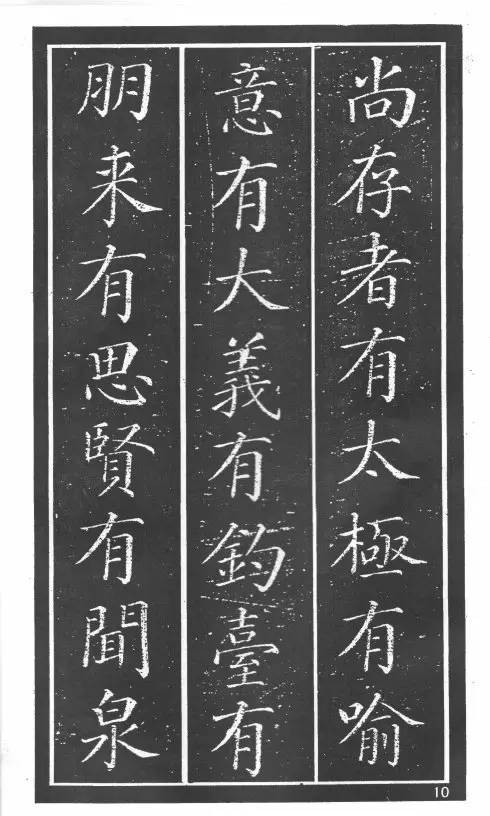 尚存者有太極有喻
意有大義有鈞臺有
朋来有思賢有聞泉
10